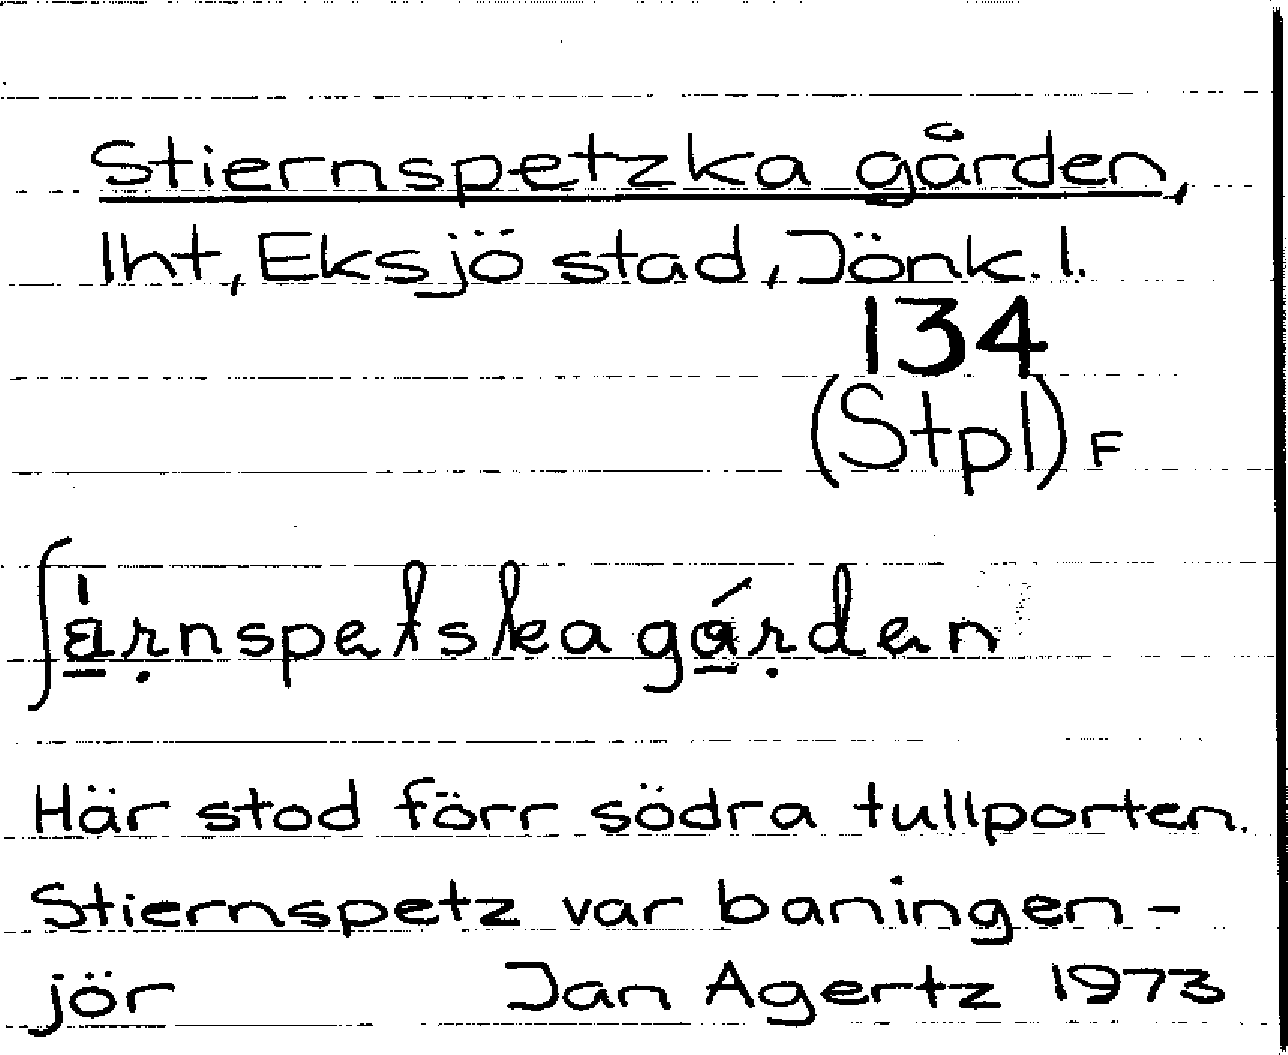 Stiernspetzka gården,
lht, Eksjö stad, Jönk. l.
134
(Stpl) F
ʃä̀ṛnspetskagá̊ṛden
Här stod förr södra tullporten.
Stiernspetz var baningen-
jör Jan Agertz 1973